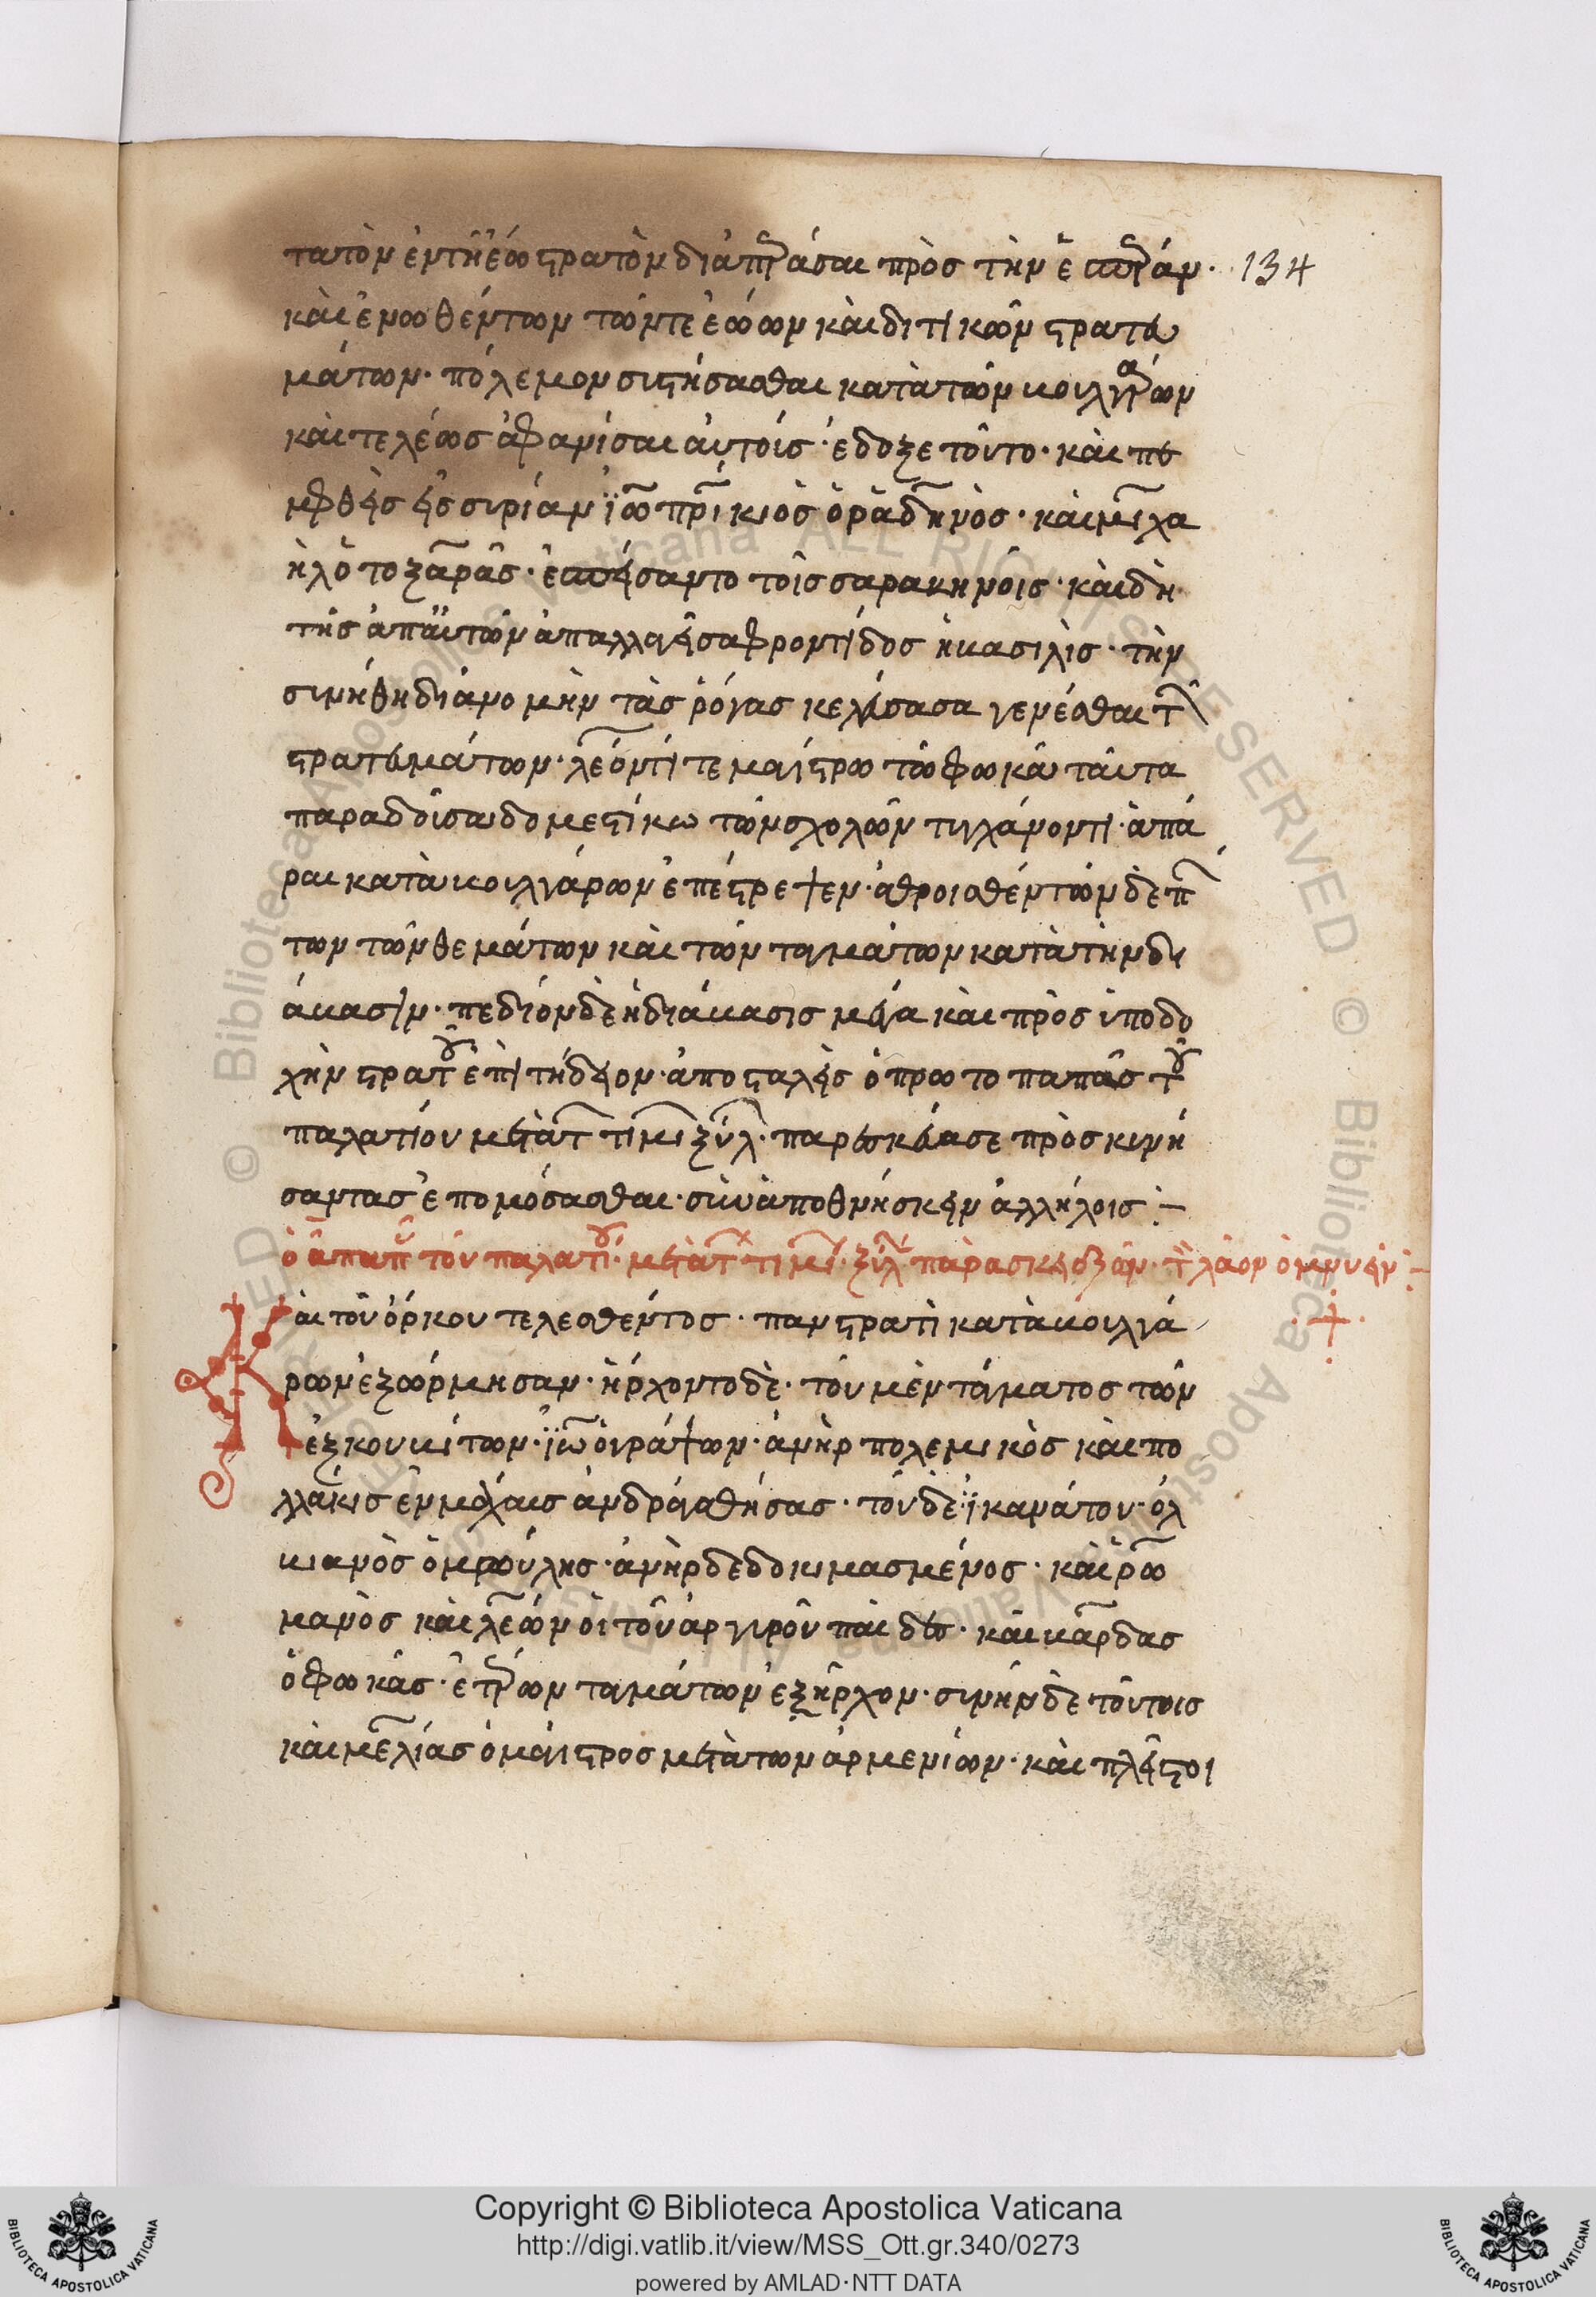 τατὸν ἐν τῆ ἑώω στρατὸν διαπεράσαι πρὸς τὴν ἑσπεράν· 134
καὶ ἐνωθέντων τῶν τε ἑώων καὶ διτικῶν στρατευ
μάτων· πόλεμον σιστήσασθαι κατὰ τῶν βουλγάρων
καὶ τελέως ἀφανίσαι αὐτοίς· ἔδοξε τοῦτο· καὶ πε
μφθεὶς εἰς σιρίαν ϊω πρίκιὸς ὁ ράδηνὸς· καὶ μιχα
ὴλ ὁ τοξαρᾶς· ἐσπείσαντο τοῖς σαρακηνοῖς· καὶ δὴ
τῆς ἀπ αὐτῶν ἀπαλλαγεῖσα φροντίδος ἡ βασιλὶς· τὴν
σινήθη διανομὴν τὰς ῥόγας κελεύσασα γενέσθαι τ
στρατευμάτων· λέοντί τε μαγίστρω τῶ φωκᾶ ταῦτα
παραδοῦσα δομεστίκω τῶν σχολῶν τιγχάνοντι· ἀπά
ραι κατὰ βουλγάρων ἐπέστρεψεν· ἀθροισθέντων δὲ π
των τῶν θεμάτων καὶ τῶν ταγμάτων κατὰ τὴν δι
άβασιν· πεδίον δὲ ἡ διάβασις μέγα καὶ πρὸς ὑποδο
χὴν στρατοῦ ἐπιτήδειον· ἀποσταλεὶς ὁ πρωτοπαπᾶς τοῦ
παλατίου μετὰ τ τιμι ξύλ· παρεσκεύασε προσκινή
σαντας ἐπομόσασθαι· σιναποθνήσκειν ἀλλήλοις :–
ὁ ἀπαπ τοῦ παλατίου· μετὰ τ τιμί· ξύλ παρασκευάζων· τ λαὸν ὀμνυεῖν :–
Καὶ τοῦ ὅρκου τελεσθέντος· πανστρατὶ κατὰ βουλγά
ρων ἐξώρμησαν· ἤρχοντο δὲ· τοῦ μὲν τάγματος τῶν
ἐξκουβίτων· ϊω ὁ γράψων· ἀνὴρ πολεμικὸς καὶ πο
λλάκις ἐν μάχαις ἀνδραγαθήσας· τοῦ δὲ ϊκανάτου· ὀλ
βιανὸς ὁ μρούλης· ἀνὴρ δεδοκιμασμένος· καὶ ῥω
μανὸς καὶ λέων οἱ τοῦ ἀργιροῦ παῖδες· καὶ βάρδας
ὁ φωκᾶς· ἑτέρων ταγμάτων ἐξῆρχον· σινῆν δὲ τούτοις
καὶ μελίας ὁ μάγιστρος μετὰ τῶν ἀρμενίων· καὶ πλεῖστοι
Copyright © Biblioteca Apostolica Vaticana
http://digi.vatlib.it/view/MSS_Ott.gr.340/0273
powered by AMLAD·NTT DATA